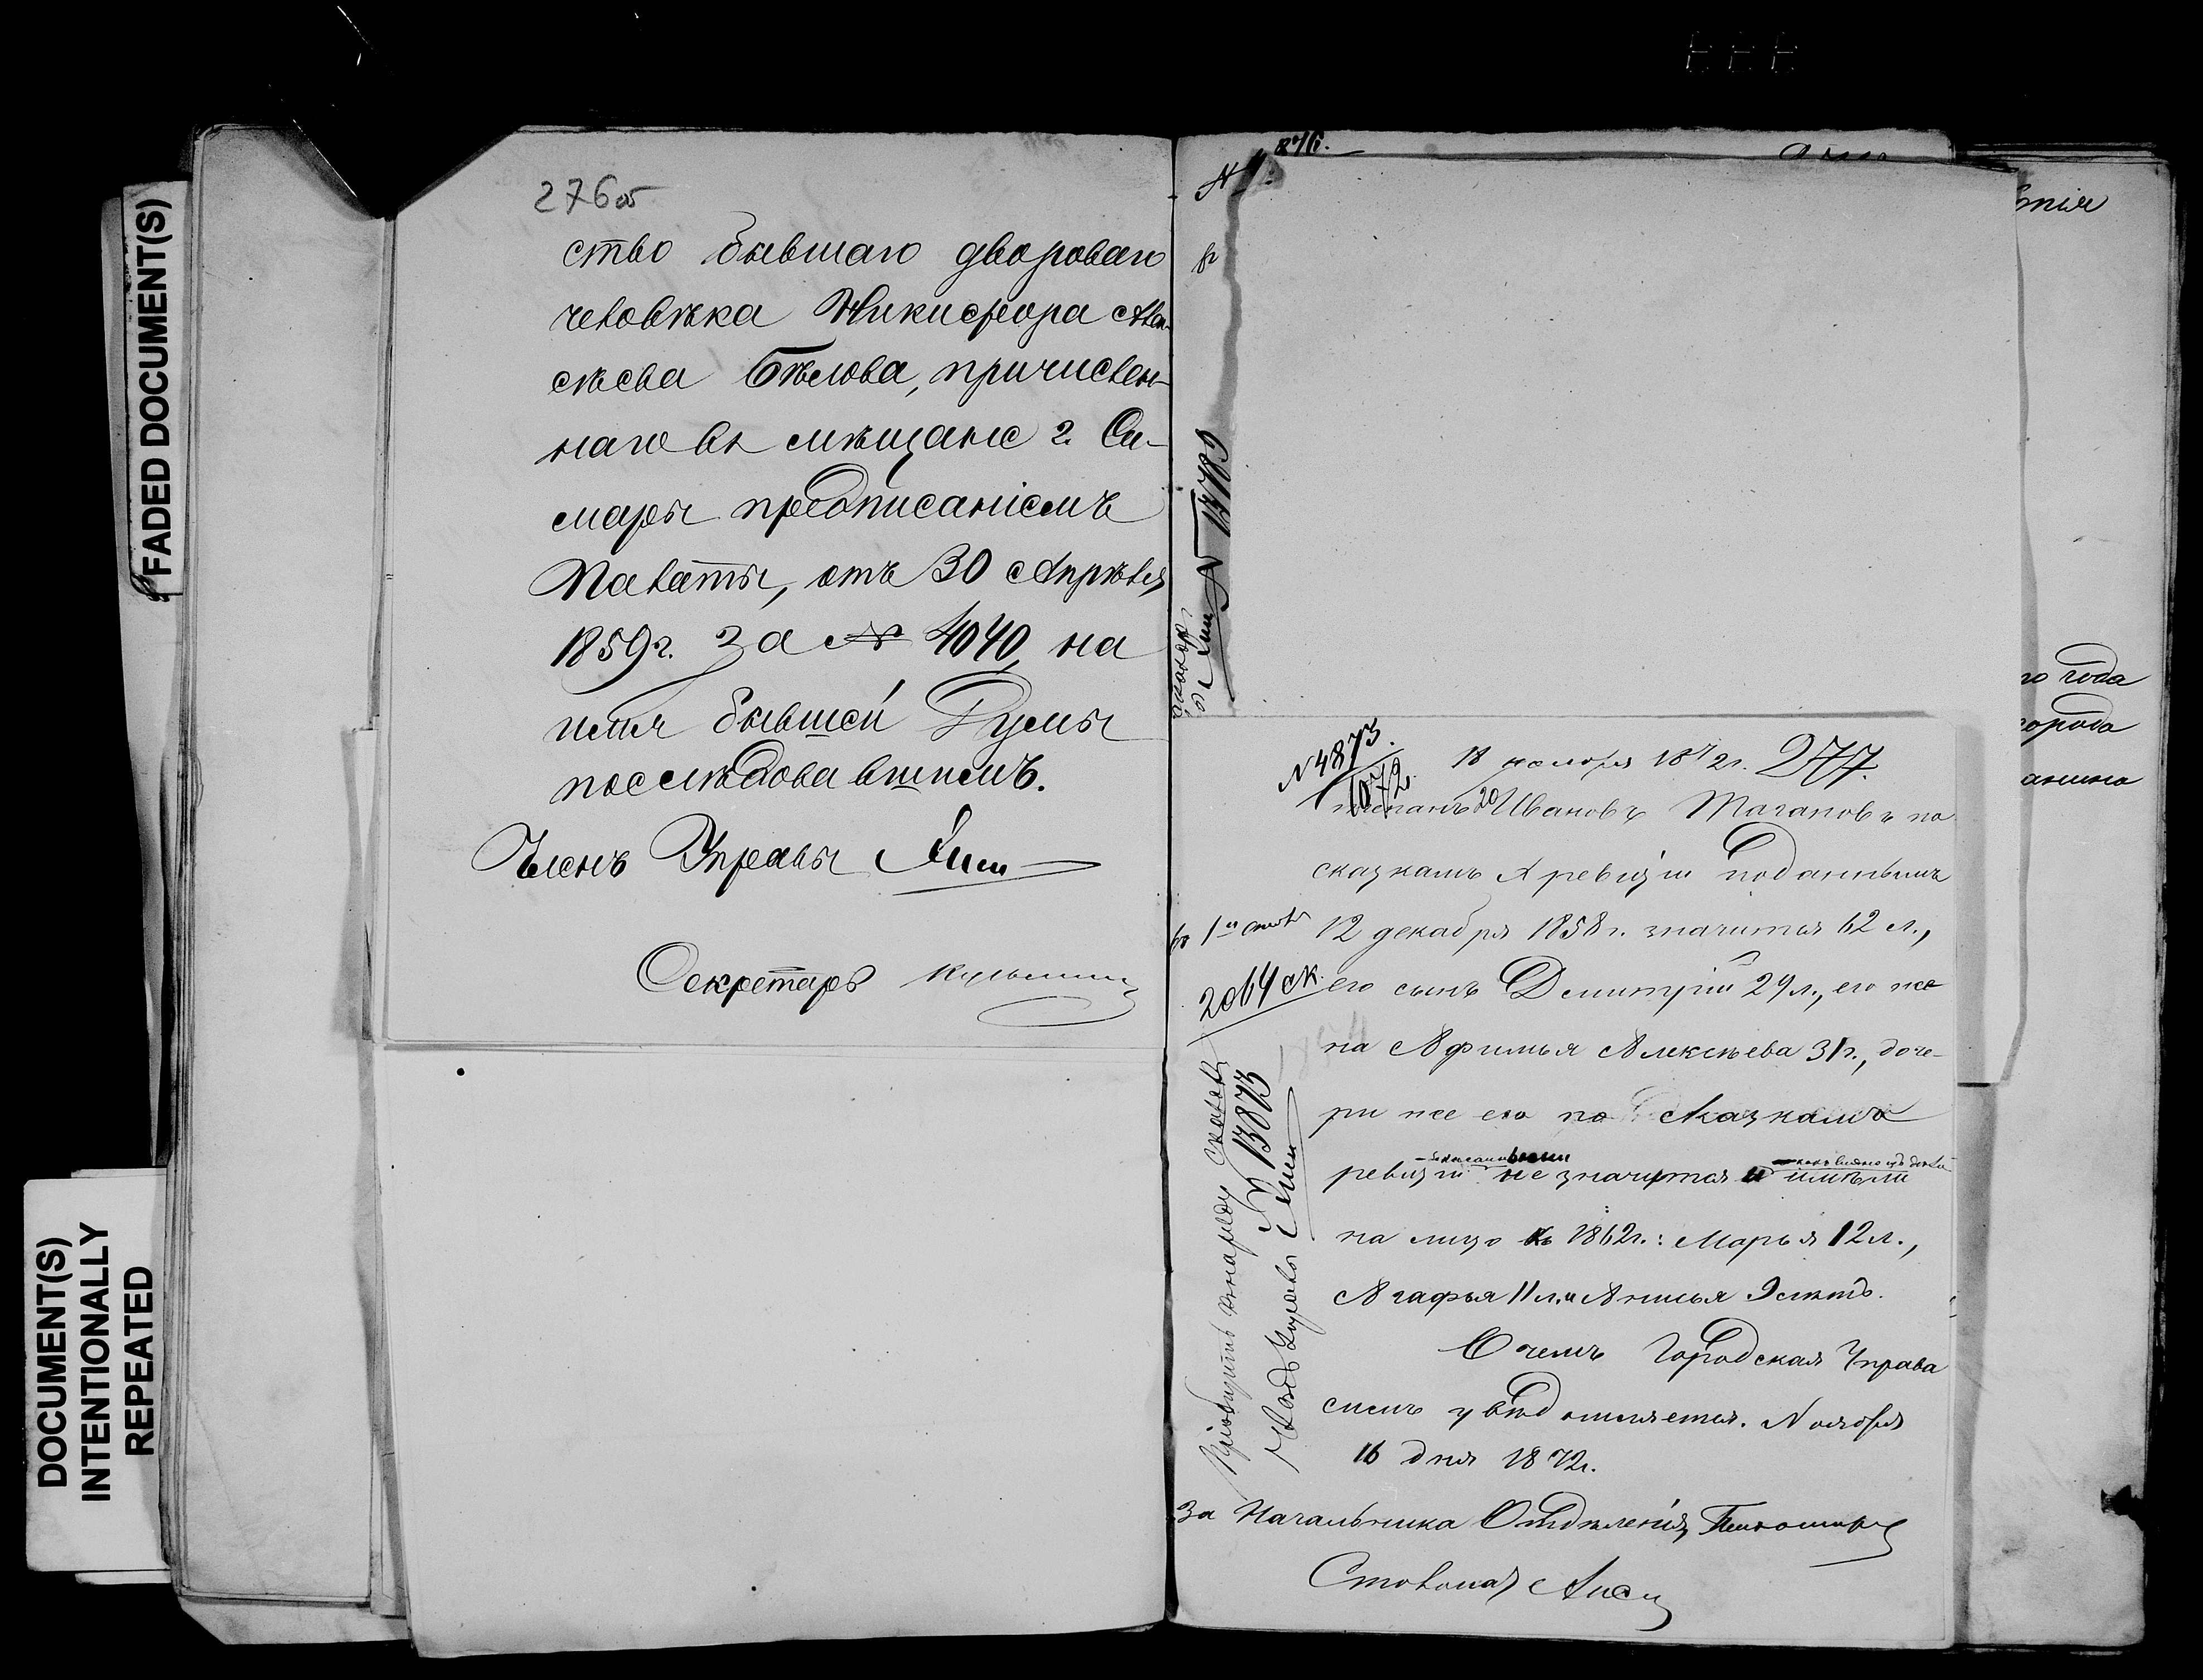 FADED DOCUMENT(S)
DOCUMENT(S)
INTENTIONALLY
REPEATED
276об
ство бывшаго двороваго
человѣка Никифора Алек-
сѣева Бѣлова, причислен-
наго въ мѣщане г. Са-
мары предписаніемъ
Палаты, отъ 30 Апрѣля
1859г. за № 4040, на
имя бывшей Думы
послѣдовавшимъ.
Членъ Управы
Секретарь
276.
№
№ 14789
тія
го года
города
анина
№4873.
1072
18 ноября 1872г. 277.
20
Степанъ Ивановъ Тагановъ по
сказкамъ X ревизіи поданнымъ
въ 1й столъ
12 декабря 1858г. значится 62 л.,
2064 ск.
его сынъ Дмитрій 29л., его же-
на Афимья Алексѣева 31г., доче-
ри же его по сказкамъ
ревизіи не значится и имѣли
на лицо къ 1862г.: Марья 12л.,
Агафья 11л. и Анисья 9 лѣтъ.
О чемъ Городская Управа
симъ увѣдомляется. Ноября
16 дня 1872г.
За Начальника Отдѣленія
Столонач.
Пріобщить къ наряду
№ 13873
Членъ Управы